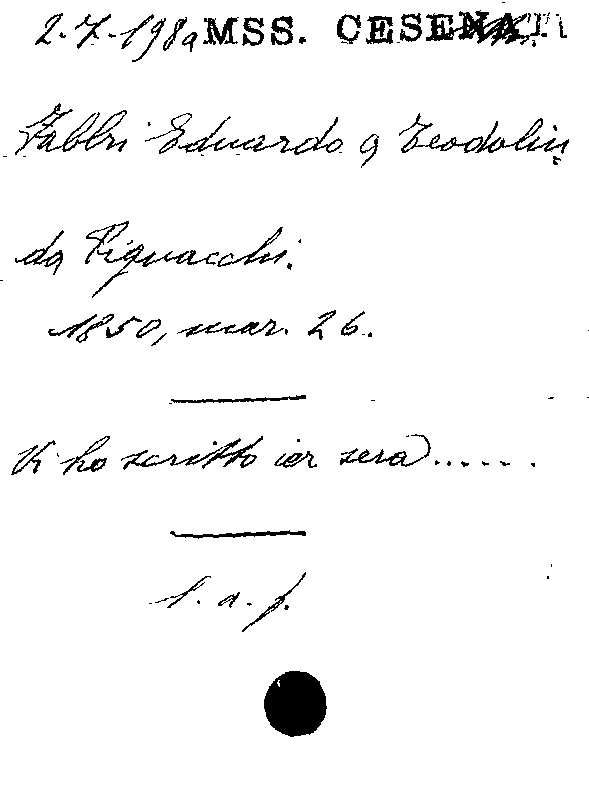 2-7-198a MSS. CESENA
Fabbri Eduardo a Teodolin
da Pignacchi.
1850, mar. 26.
Vi ho scritto ier sera......
l. a. f.